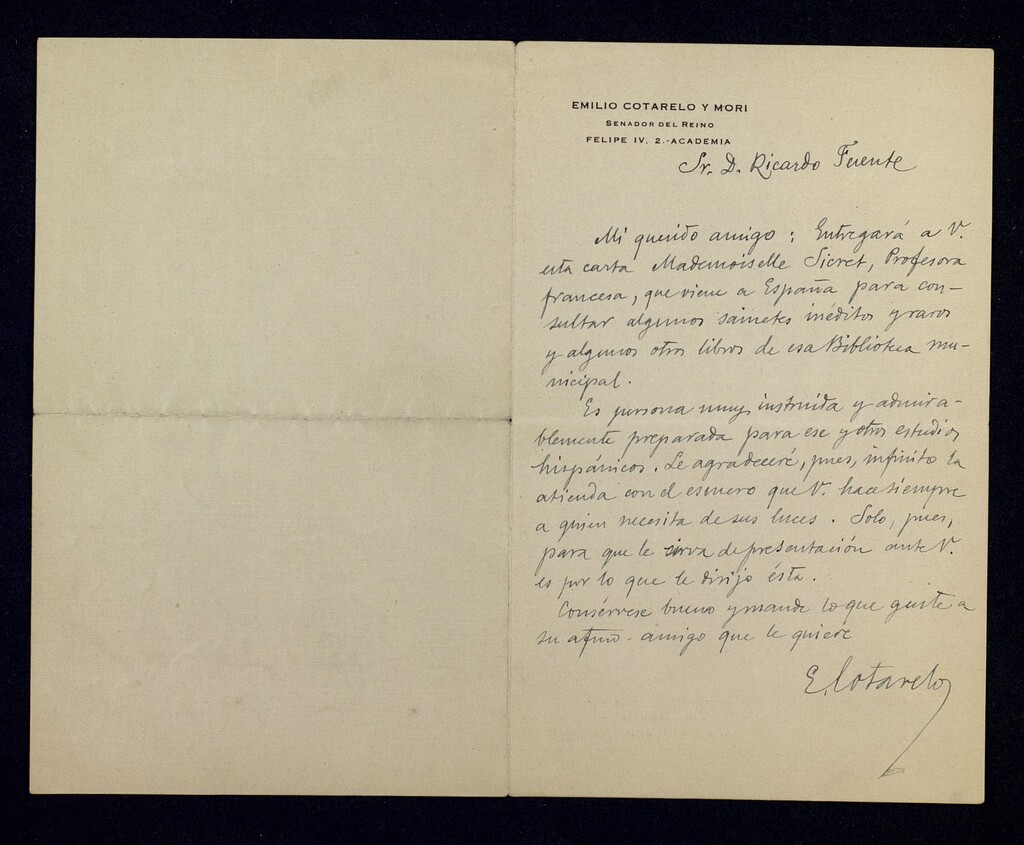 EMILIO COTARELO Y MORI
SENADOR DEL REINO
FELIPE IV, 2.-ACADEMIA
Sr. D. Ricardo Fuente
Mi querido amigo: Entregará a V.
esta carta Mademoiselle Sicret, Profesora
francesa, que viene a España para con-
sultar algunos sainetes inéditos y raros
y algunos otros libros de esa Biblioteca mu-
nicipal.
Es persona muy instruida y admira-
blemente preparada para ese y otros estudios
hispánicos. Le agradeceré, pues, infinito la
atienda con el esmero que V. hace siempre
a quien necesita de sus luces. Solo, pues,
para que le sirva de presentación ante V.
es por lo que le dirijo ésta.
Consérvese bueno y mande lo que guste a
su afmo. amigo que le quiere
E. Cotarelo